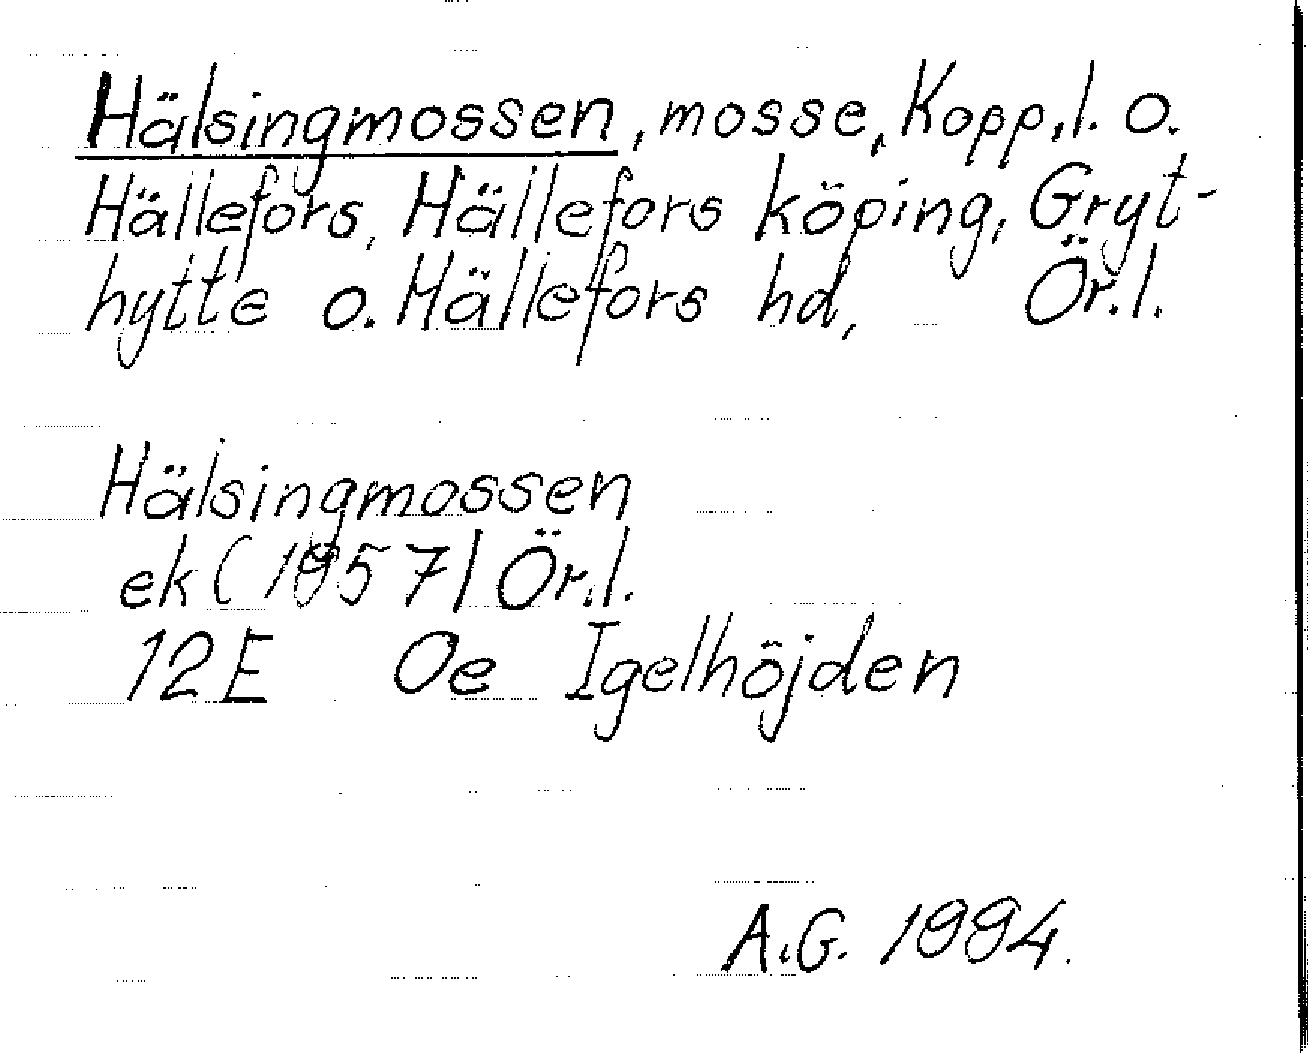 Hälsingmossen, mosse, Kopp.l. o.
Hällefors, Hällefors köping, Gryt-
hytte o. Hällefors hd, Ör.l.
Hälsingmossen
ek (1957) Ör.l.
12E 0e Igelhöjden
A.G. 1994.